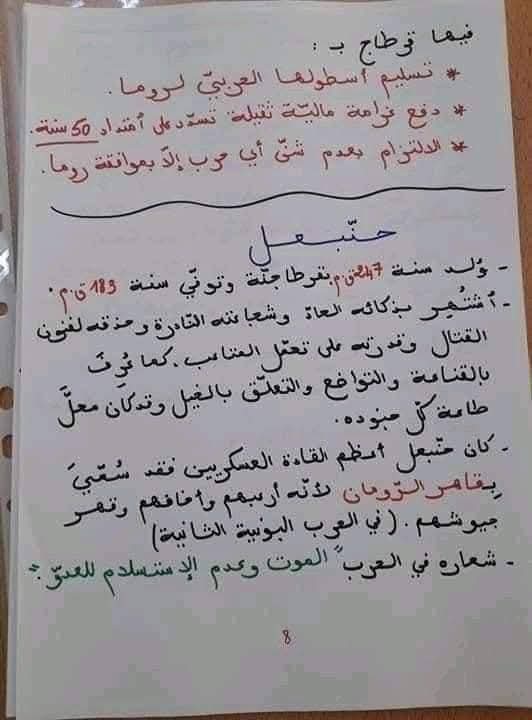 فيها قرطاج بـ :
* تسليم أسطولها الحربيّ لروما.
* دفع غرامة ماليّة ثقيلة تسدّد على امتداد 50 سنة.
* الالتزام بعدم شنّ أي حرب إلاّ بموافقة روما.
حنّبعل
- وُلد سنة 247 ق.م. بقرطاجنّة وتوفّي سنة 183 ق.م.
- اشتُهِر بذكائه الحادّ وشجاعته النّادرة وحذقه لفنون
القتال وقدرته على تحمّل المتاعب. كما عُرِفَ
بالقناعة والتواضع والتعلّق بالخيل وقد كان محلَّ
طاعة كلّ جنوده.
- كان حنّبعل أعظم القادة العسكريين فقد سُمّيَ
بِقاهر الرّومان لأنّه أرهبهم وأخافهم وقهر
جيوشهم. (في الحرب البونية الثانية)
- شعاره في الحرب "الموت وعدم الإستسلام للعدوّ".
8